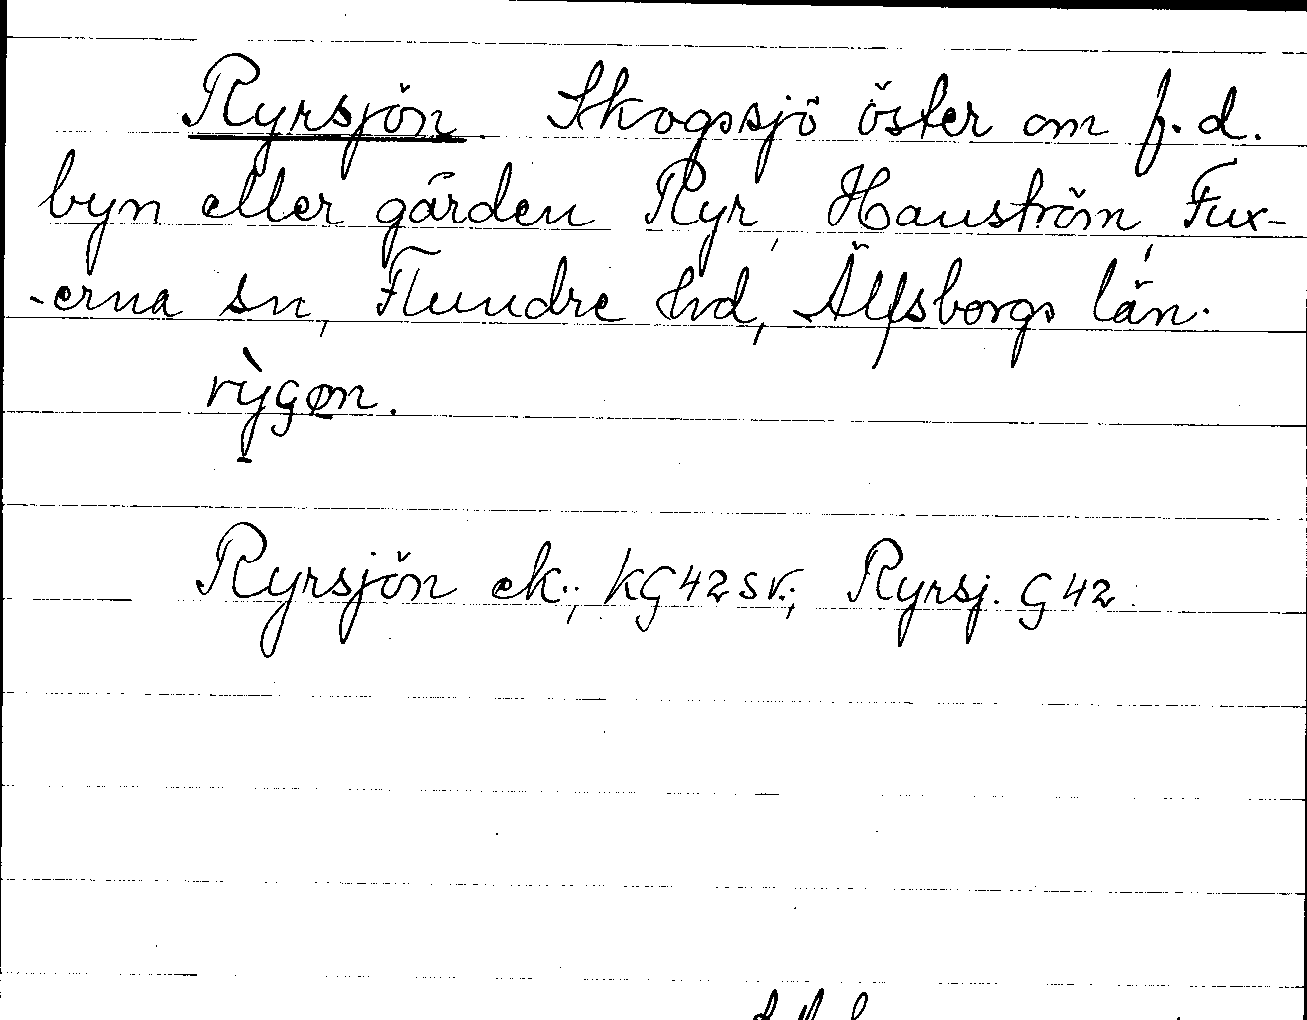 Ryrsjön. Skogssjö öster om f.d.
byn eller gården Ryr, Hanström, Fux-
-erna sn, Flundre hd, Älfsborgs län.
Ryrsjön ek.; KG42SV.; Ryrsj. G42.